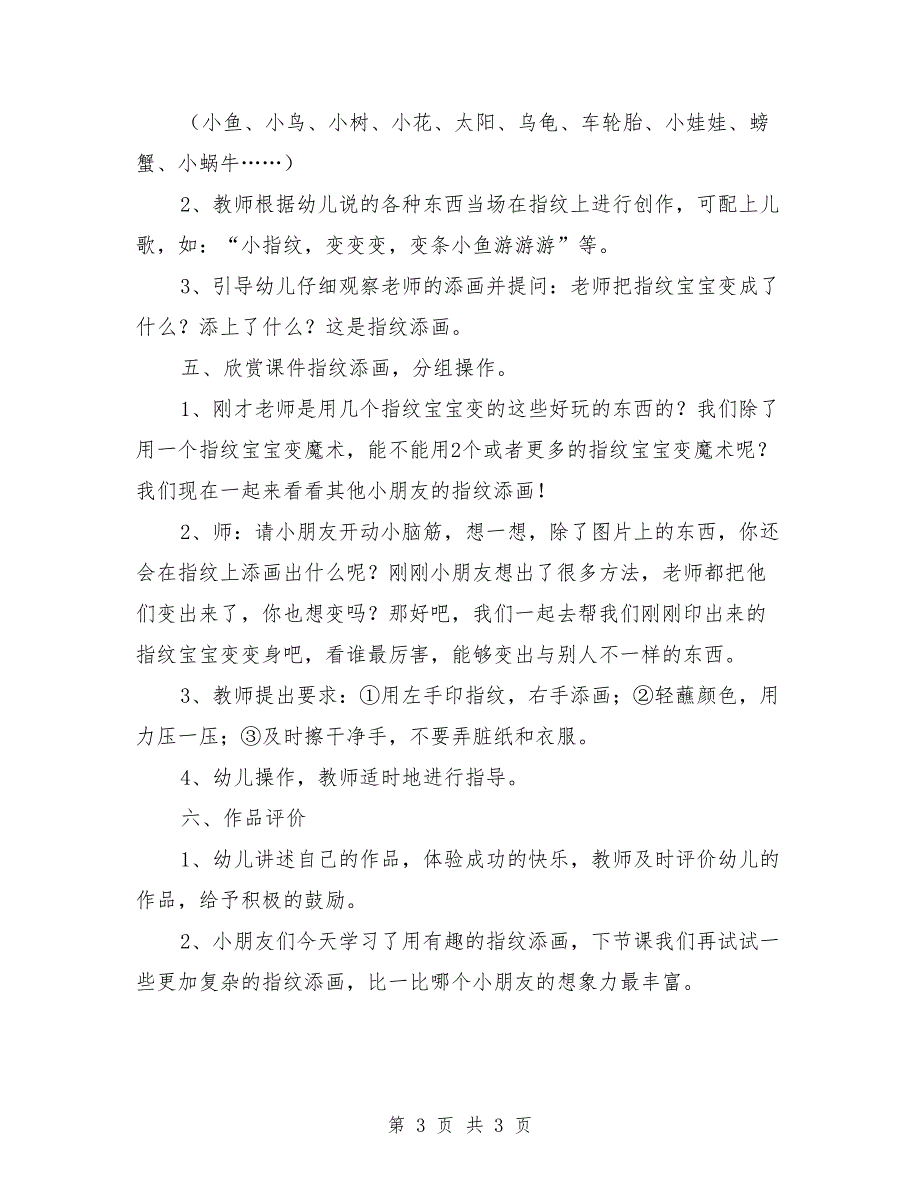 （小鱼、小鸟、小树、小花、太阳、乌龟、车轮胎、小娃娃、螃
蟹、小蜗牛……）
2、教师根据幼儿说的各种东西当场在指纹上进行创作，可配上儿
歌，如：“小指纹，变变变，变条小鱼游游游”等。
3、引导幼儿仔细观察老师的添画并提问：老师把指纹宝宝变成了
什么？添上了什么？这是指纹添画。
五、欣赏课件指纹添画，分组操作。
1、刚才老师是用几个指纹宝宝变的这些好玩的东西的？我们除了
用一个指纹宝宝变魔术，能不能用2个或者更多的指纹宝宝变魔术呢？
我们现在一起来看看其他小朋友的指纹添画！
2、师：请小朋友开动小脑筋，想一想，除了图片上的东西，你还
会在指纹上添画出什么呢？刚刚小朋友想出了很多方法，老师都把他
们变出来了，你也想变吗？那好吧，我们一起去帮我们刚刚印出来的
指纹宝宝变变身吧，看谁最厉害，能够变出与别人不一样的东西。
3、教师提出要求：①用左手印指纹，右手添画；②轻蘸颜色，用
力压一压；③及时擦干净手，不要弄脏纸和衣服。
4、幼儿操作，教师适时地进行指导。
六、作品评价
1、幼儿讲述自己的作品，体验成功的快乐，教师及时评价幼儿的
作品，给予积极的鼓励。
2、小朋友们今天学习了用有趣的指纹添画，下节课我们再试试一
些更加复杂的指纹添画，比一比哪个小朋友的想象力最丰富。
第 3 页 共 3 页